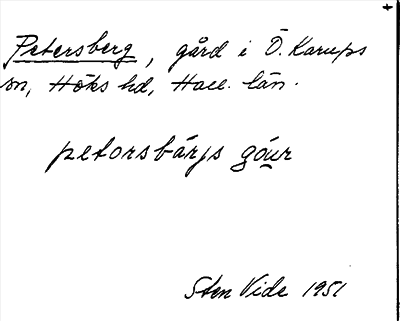 Petersberg, gård i Ö. Karups
sn, Höks hd, Hall. län.
petorsbärjs góur
Sten Vide 1951